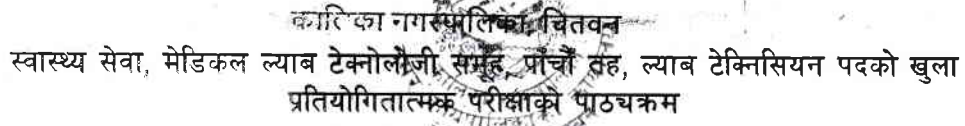 कालिका नगरपालिका, चितवन
स्वास्थ्य सेवा, मेडिकल ल्याब टेक्नोलोजी समूह, पाँचौं तह, ल्याब टेक्निसियन पदको खुला
प्रतियोगितात्मक परीक्षाको पाठ्यक्रम